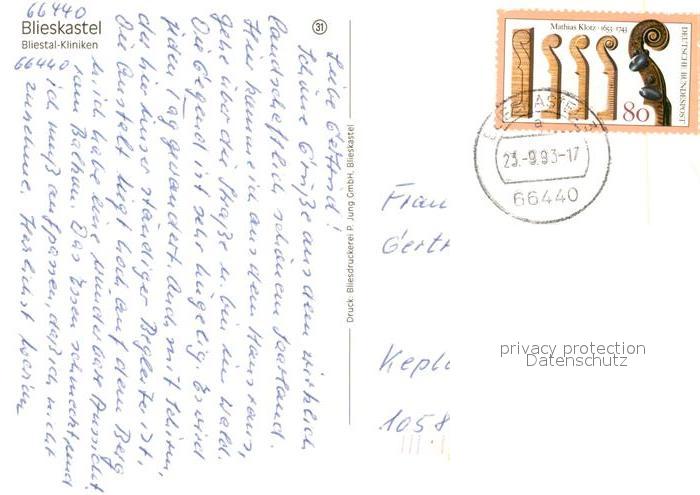 66440
Blieskastel
Bliestal-Kliniken
66440
31
Liebe Gertrud!
Schöne Grüße aus dem wirklich
landschaftlich schönen Saarland.
Hier komme ich aus dem Haus raus,
gehe über die Straße u. bin im Wald.
Die Gegend ist sehr hügelig. Es wird
jeden Tag gewandert. Auch mit Schirm,
da hier unser ständiger Begleiter ist.
Die Anstalt liegt hoch auf dem Berg
u. ich habe eine wunderbare Aussicht
vom Balkon. Das Essen schmeckt und
ich muß aufpassen, daß ich nicht
zunehme. Herzlichst
Druck: Bliesdruckerei P. Jung GmbH, Blieskastel
Mathias Klotz · 1653-1743
80
DEUTSCHE BUNDESPOST
BLIESKASTEL
a
23.-9.93-17
66440
Frau
Gertr
Kepl
1058
privacy protection
Datenschutz